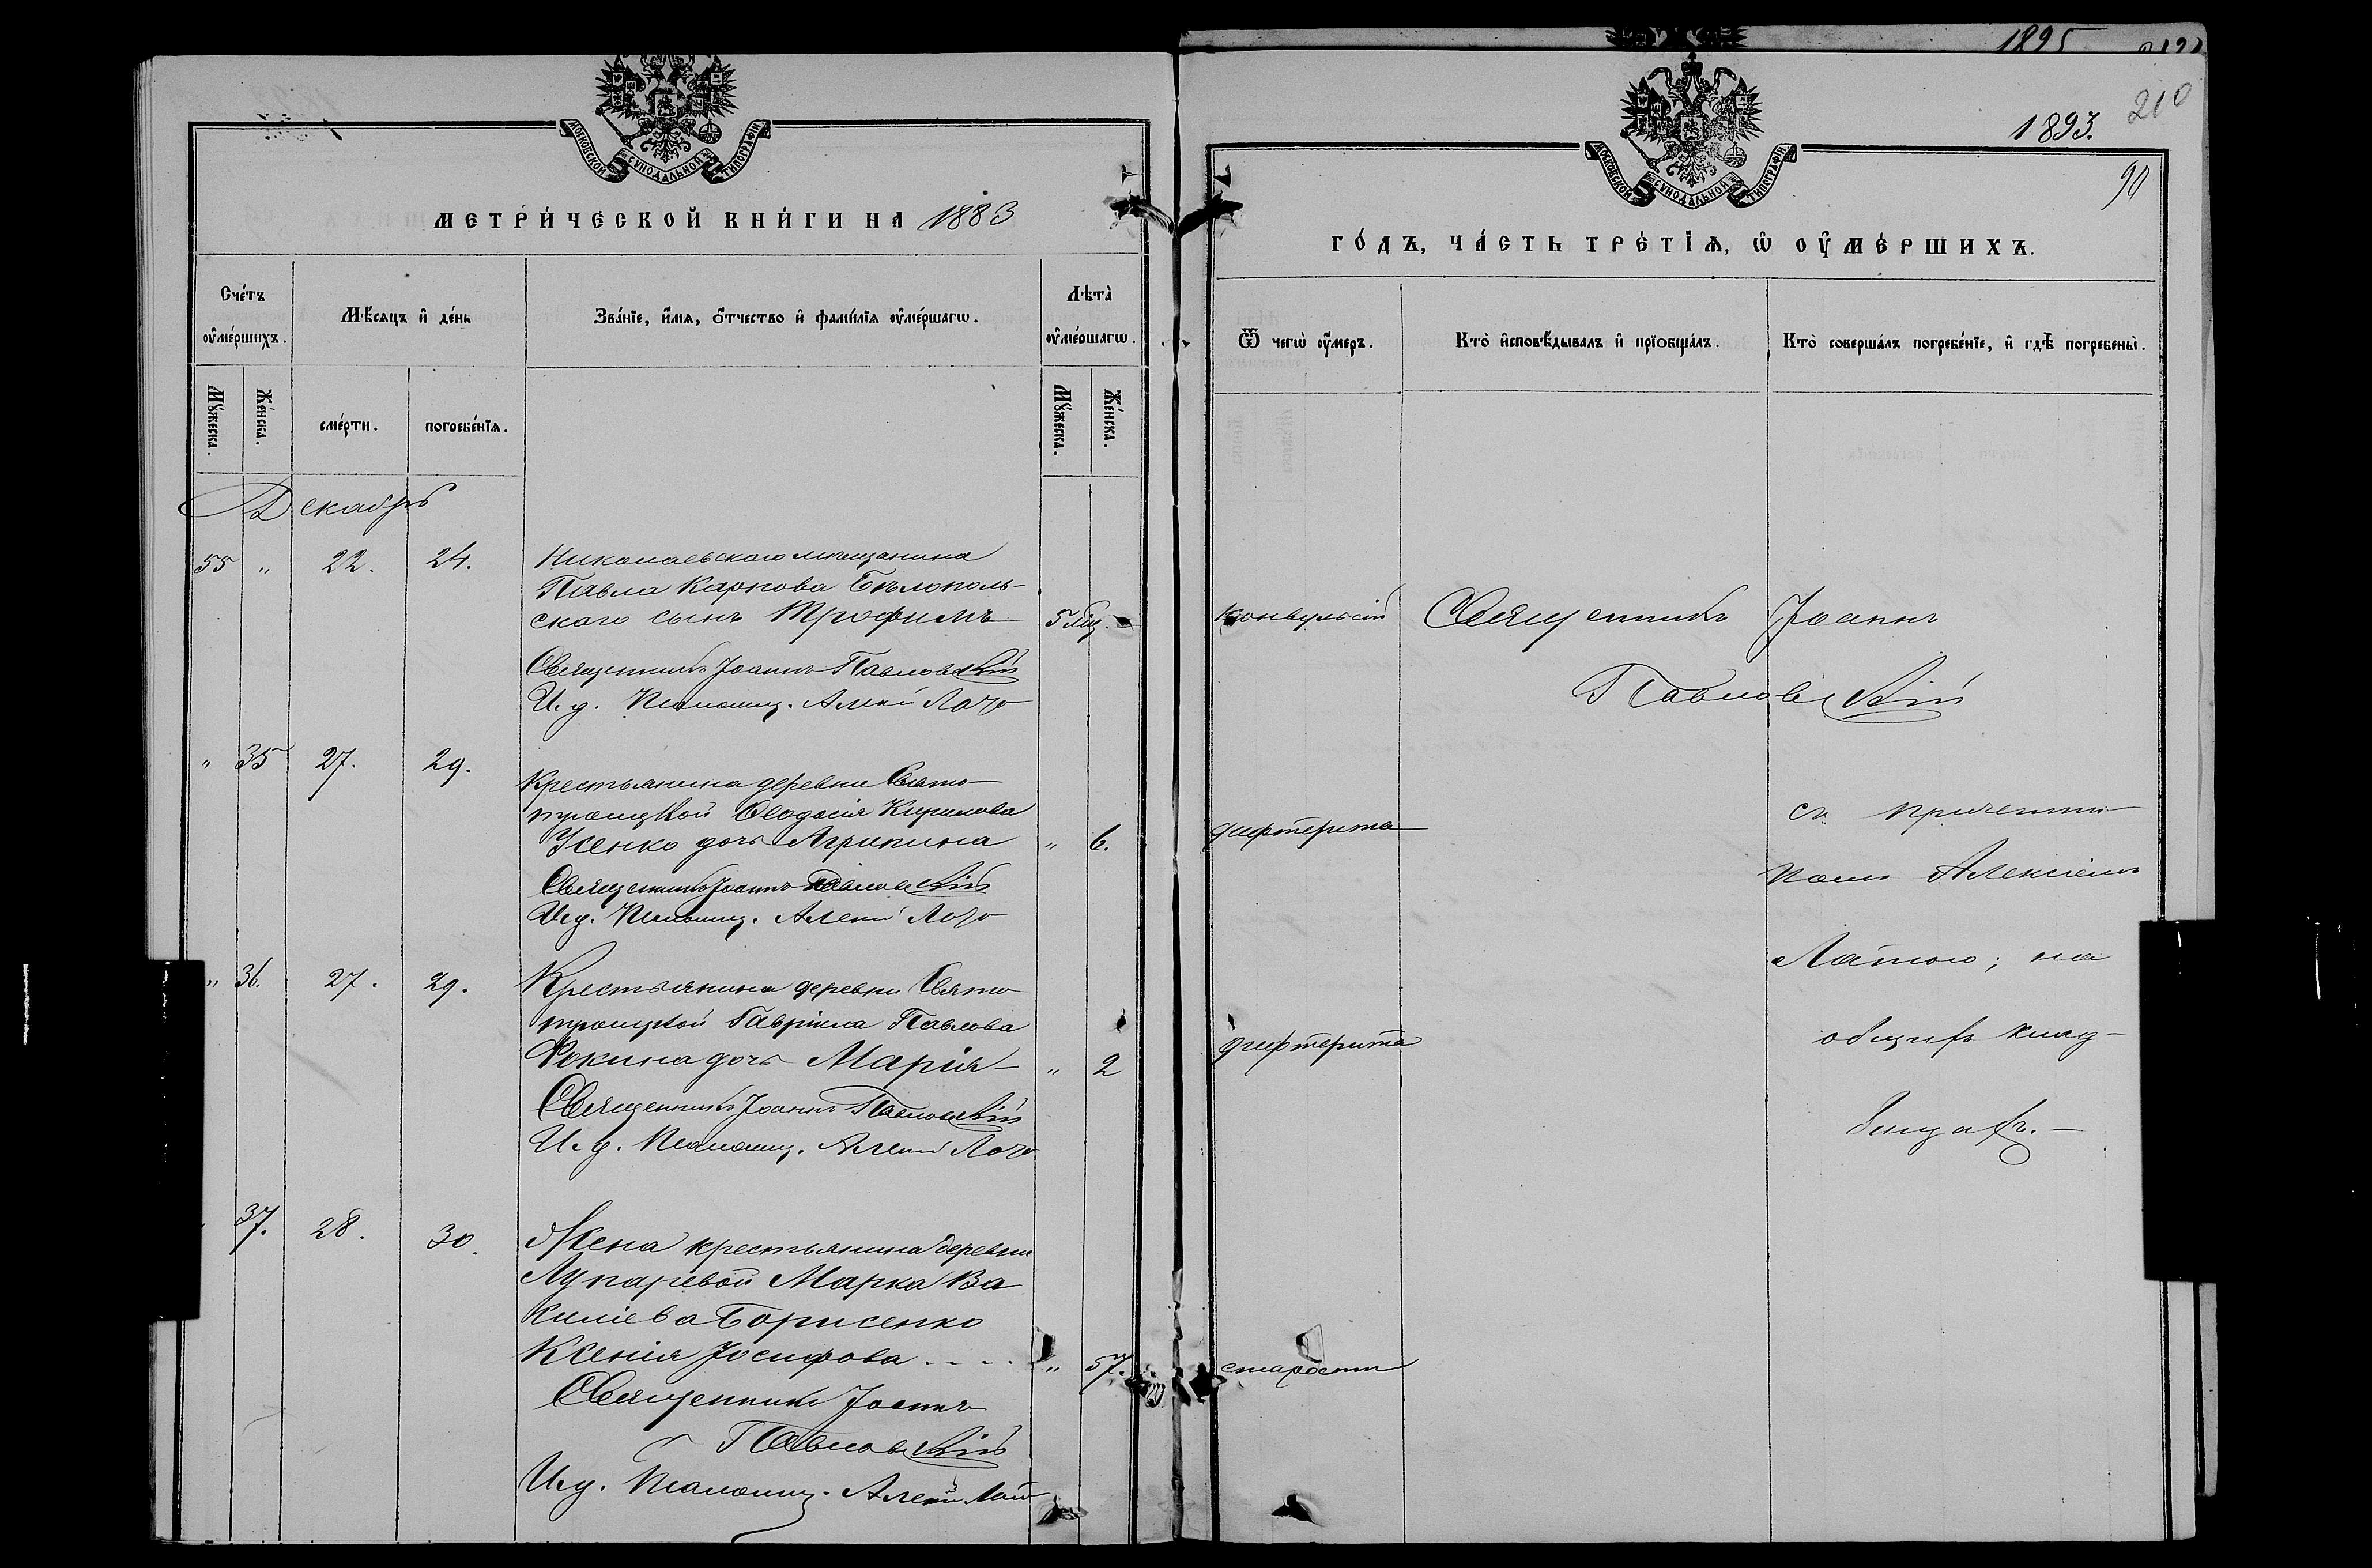 МОСКОВСКОЙ СѴНОДАЛЬНОЙ ТИПОГРАФІИ
МЕТРИ́ЧЕСКОЙ КНИ́ГИ НА 1883
Сче́тъ ᲂу҆ме́ршихъ.
Мѣ́сяцъ и҆ де́нь
Зва́нїе, и҆́мѧ, ѻ҆́тчество и҆ фами́лїѧ ᲂу҆ме́ршагѡ.
Лѣта̀ ᲂу҆ме́ршагѡ.
Мꙋ́жеска.
Же́нска.
сме́рти.
погребе́нїѧ.
Мꙋ́жеска.
Же́нска.
Декабрь
55 " 22. 24.
Николаевскаго мѣщанина
Павла Карпова Бѣлополь-
скаго сынъ Трофимъ 5 мц.
Священникъ Іоаннъ Павловскій
И. д. Псаломщ. Алексій Лато
" 35 27. 29.
Крестьянина деревни Свято-
троицкой Ѳеодосія Кирилова
Усенко дочь Агрипина " 6.
Священникъ Іоаннъ Павловскій
И.д. Псаломщ. Алексій Лато
" 36. 27. 29.
Крестьянина деревни Свято
троицкой Гавріила Павлова
Фокина дочь Марія " 2
Священникъ Іоаннъ Павловскій
И. д. Псаломщ. Алексій Лато
37. 28. 30.
Жена крестьянина деревни
Лупаревой Марка Ва
киліева Борисенко
Ксенія Іосифова - - - - " 57.
Священникъ Іоаннъ
Павловскій
И.д. Псаломщ. Алексій Лато
1895
210
1893.
90
МОСКОВСКОЙ СѴНОДАЛЬНОЙ ТИПОГРАФІИ
ГО́ДЪ, ЧА́СТЬ ТРЕ́ТІѦ, Ѡ҆ ОУ҆МЕ́РШИХЪ.
Ѿ чегѡ̀ ᲂу҆́меръ.
Кто̀ и҆сповѣ́дывалъ и҆ прїобща́лъ.
Кто̀ соверша́лъ погребе́нїе, и҆ гдѣ̀ погребены̀.
конвульсій
Священникъ Іоаннъ
Павловскій
съ причетни-
дифтерита
комъ Алексіемъ
Латою; на
общемъ клад-
дифтерита
бищѣ. —
старости